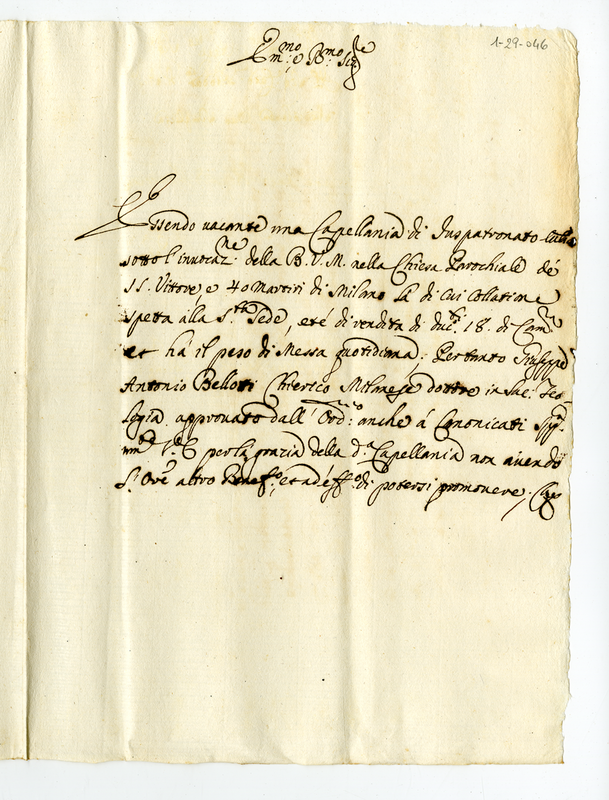 1-29-046
Em.mo e R.mo Sig.re
Essendo vacante una Capellania di Juspatronato
sotto l'invocaz.ne della B. V. M. nella Chiesa Parochiale de
SS. Vittore, e 40 Martiri di Milano la di cui Collatione
spetta alla S.ta Sede, et é di rendita di duc.ti 18. di Cam.a
et há il peso di Messa quotidiana; Pertanto Giuseppe
Antonio Bellotti Chierico Milanese dottre in Sac. Teo-
logia approvato dall' Ord.rio anche á Canonicati
V. E. per la grazia della d.a Capellania non avendo
l'Ore altro Benef.o, et ad éff.o di potersi promovere;